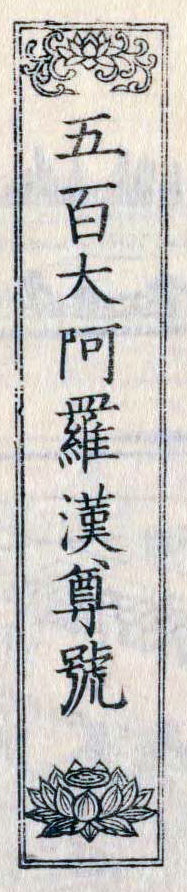 五百大阿羅漢尊號